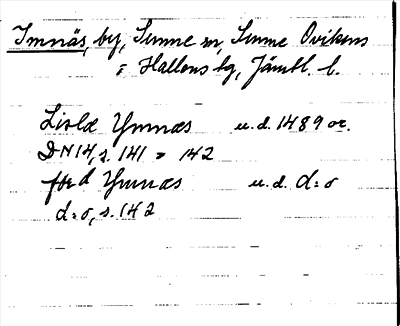 Imnäs, by, Sunne sn, Sunne Ovikens
= Hallens tg, Jämtl. l.
Lisle Ymnæs u.d. 1489 or.
DN 14, s. 141 = 142
Ymnæs u.d. d:o
d:o, s. 142